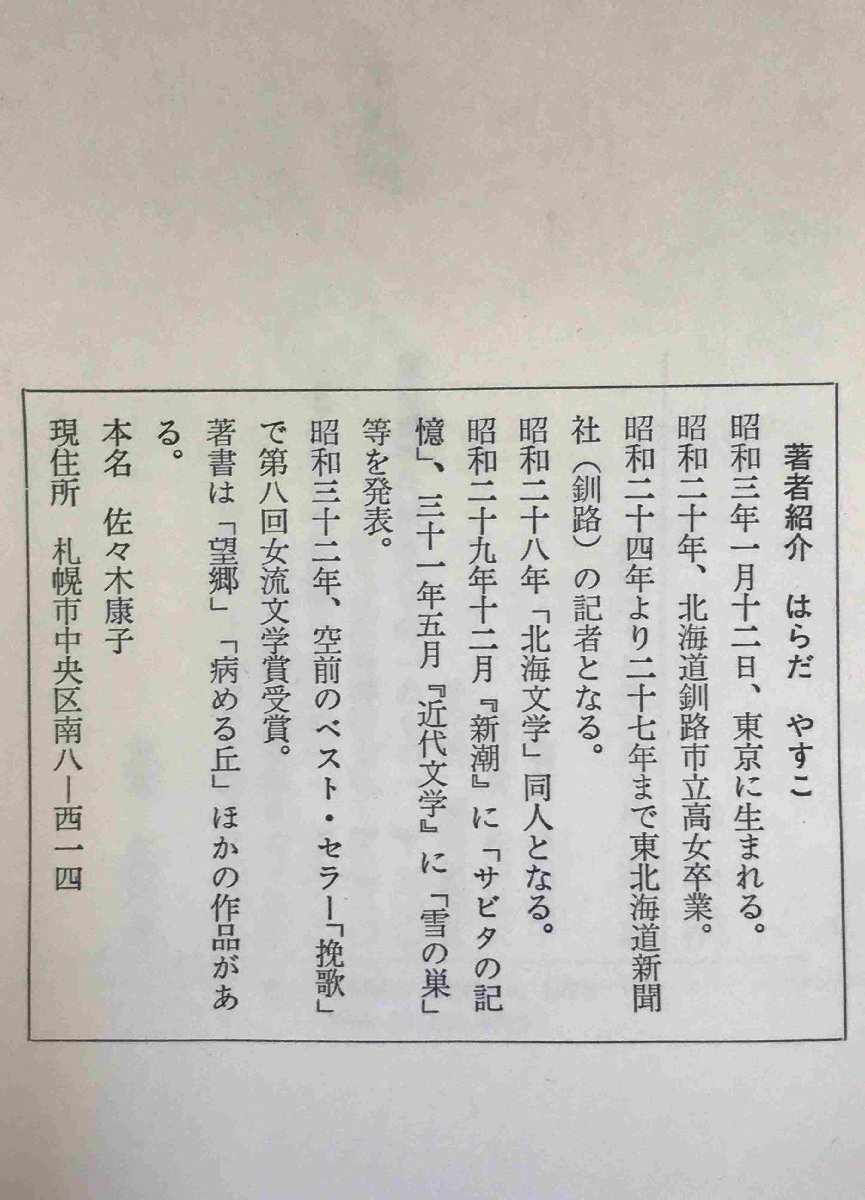 著者紹介　はらだ　やすこ
昭和三年一月十二日、東京に生まれる。
昭和二十年、北海道釧路市立高女卒業。
昭和二十四年より二十七年まで東北海道新聞
社（釧路）の記者となる。
昭和二十八年「北海文学」同人となる。
昭和二十九年十二月『新潮』に「サビタの記
憶」、三十一年五月『近代文学』に「雪の巣」
等を発表。
昭和三十二年、空前のベスト・セラー「挽歌」
で第八回女流文学賞受賞。
著書は「望郷」「病める丘」ほかの作品があ
る。
本名　佐々木康子
現住所　札幌市中央区南八ー西一四